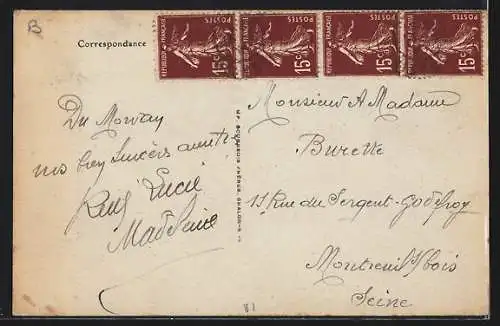 B
Correspondance
REPUBLIQUE FRANÇAISE POSTES 15c
REPUBLIQUE FRANÇAISE POSTES 15c
REPUBLIQUE FRANÇAISE POSTES 15c
REPUBLIQUE FRANÇAISE POSTES 15c
Du Morvan
nos bien sincères amitiés
Lucie
Madeleine
Monsieur & Madame
Burette
11 Rue du Sergent-Godefroy
Montreuil s/bois
Seine
81